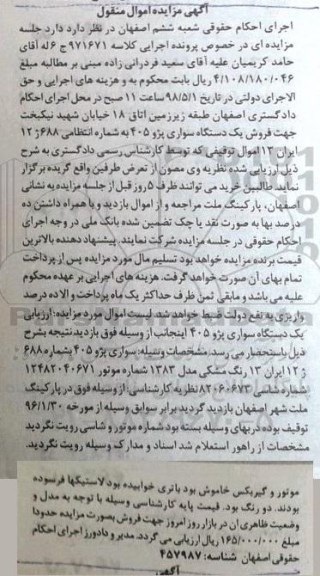 آگهی مزایده اموال منقول
اجرای احکام حقوقی شعبه ششم اصفهان در نظر دارد دارد جلسه
مزایده ای در خصوص پرونده اجرایی کلاسه ۹۷۱۶۷۱ ج ۶ له آقای
حامد کریمیان علیه آقای سعید فردرانی زاده مبنی بر مطالبه مبلغ
۴/۱۰۸/۱۸۰/۰۴۶ ریال بابت محکوم به و هزینه های اجرایی و حق
الاجرای دولتی در تاریخ ۹۸/۵/۱ ساعت ۱۱ صبح در محل اجرای احکام
دادگستری اصفهان طبقه زیرزمین اتاق ۱۸ خیابان شهید نیکبخت
جهت فروش یک دستگاه سواری پژو ۴۰۵ به شماره انتظامی ۶۸۸ ژ ۱۲
ایران ۱۳ اموال توقیفی که توسط کارشناس رسمی دادگستری به شرح
ذیل ارزیابی شده نظریه وی مصون از تعرض طرفین واقع گردیده برگزار
نماید. طالبین خرید می توانند ظرف ۵ روز قبل از جلسه مزایده به نشانی
اصفهان، پارکینگ ملت مراجعه و از اموال بازدید و با همراه داشتن ده
درصد بها به صورت نقد یا چک تضمین شده بانک ملی در وجه اجرای
احکام حقوقی در جلسه مزایده شرکت نمایند. پیشنهاد دهنده بالاترین
قیمت برنده مزایده خواهد بود تسلیم مال مورد مزایده پس از پرداخت
تمام بهای آن صورت خواهد گرفت. هزینه های اجرایی بر عهده محکوم
علیه می باشد و مابقی ثمن ظرف حداکثر یک ماه پرداخت و الا ده درصد
واریزی به نفع دولت ضبط خواهد شد. لیست اموال مورد مزایده: ارزیابی
یک دستگاه سواری پژو ۴۰۵ اینجانب از وسیله فوق بازدید نتیجه بشرح
ذیل باستحضار می رسد. مشخصات وسیله: سواری پژو ۴۰۵ بشماره ۶۸۸
ژ ۱۲ ایران ۱۳ رنگ مشکی مدل ۱۳۸۳ شماره موتور ۱۲۴۸۲۰۴۰۶۷۱
شماره شاسی ۸۲۰۶۰۶۷۳ نظریه کارشناسی: از وسیله فوق در پارکینگ
ملت شهر اصفهان بازدید گردید برابر سوابق وسیله از مورخه ۹۶/۱/۳۰
توقیف بوده دربهای وسیله بسته بود شماره موتور و شاسی رویت نگردید
مشخصات از راهور استعلام شد اسناد و مدارک وسیله رویت نگردید.
موتور و گیربکس خاموش بود باتری خوابیده بود لاستیکها فرسوده
بودند. دو رنگ بود. قیمت پایه کارشناسی وسیله با توجه به مدل و
وضعیت ظاهری آن در بازار روز امروز جهت فروش بصورت مزایده حدودا
مبلغ ۱۶۵/۰۰۰/۰۰۰ ریال ارزیابی می گردد. مدیر و دادورز اجرای احکام
حقوقی اصفهان شناسه: ۴۵۷۹۸۷
آگهی